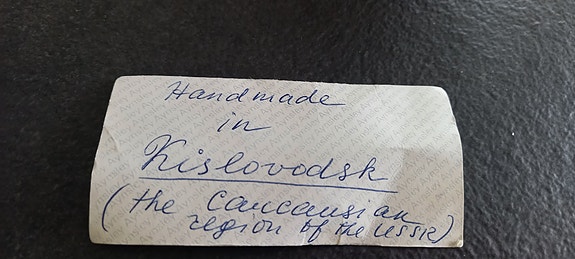 Handmade
in
Kislovodsk
(the Caucausian
region of the USSR)